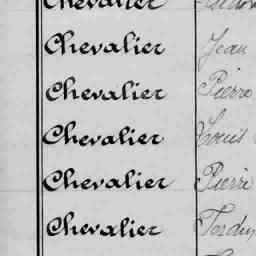 Chevalier
Chevalier Jean
Chevalier Pierre
Chevalier Louis
Chevalier Pierre
Chevalier